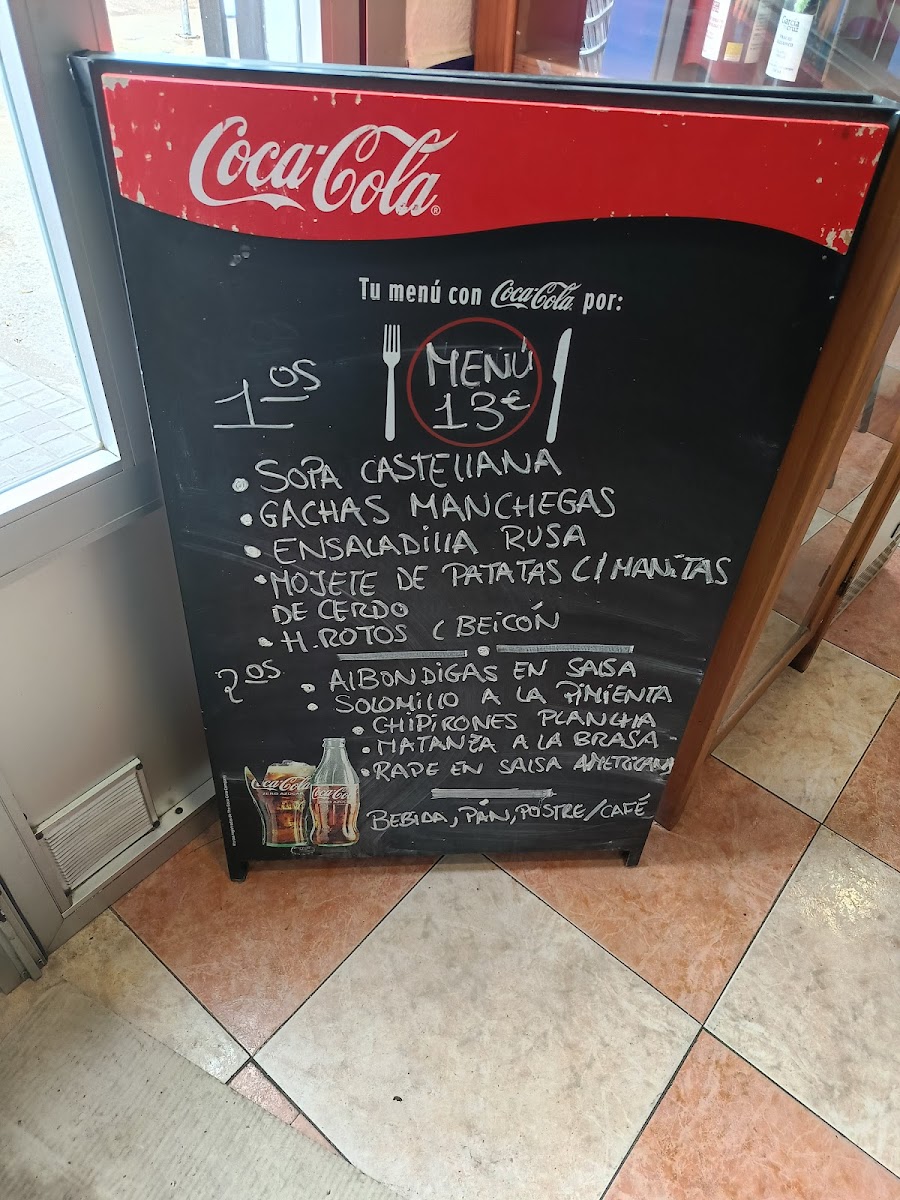 Coca-Cola®
Tu menú con Coca-Cola por:
1os
MENÚ
13€
• SOPA CASTELLANA
• GACHAS MANCHEGAS
• ENSALADILLA RUSA
• MOJETE DE PATATAS C/MANITAS
DE CERDO
• H. ROTOS C BEICÓN
2os
• ALBONDIGAS EN SALSA
• SOLOMILLO A LA PIMIENTA
• CHIPIRONES PLANCHA
• MATANZA A LA BRASA
• RAPE EN SALSA AMERICANA
BEBIDA, PAN, POSTRE/CAFÉ
Coca-Cola
ZERO AZÚCAR
Coca-Cola